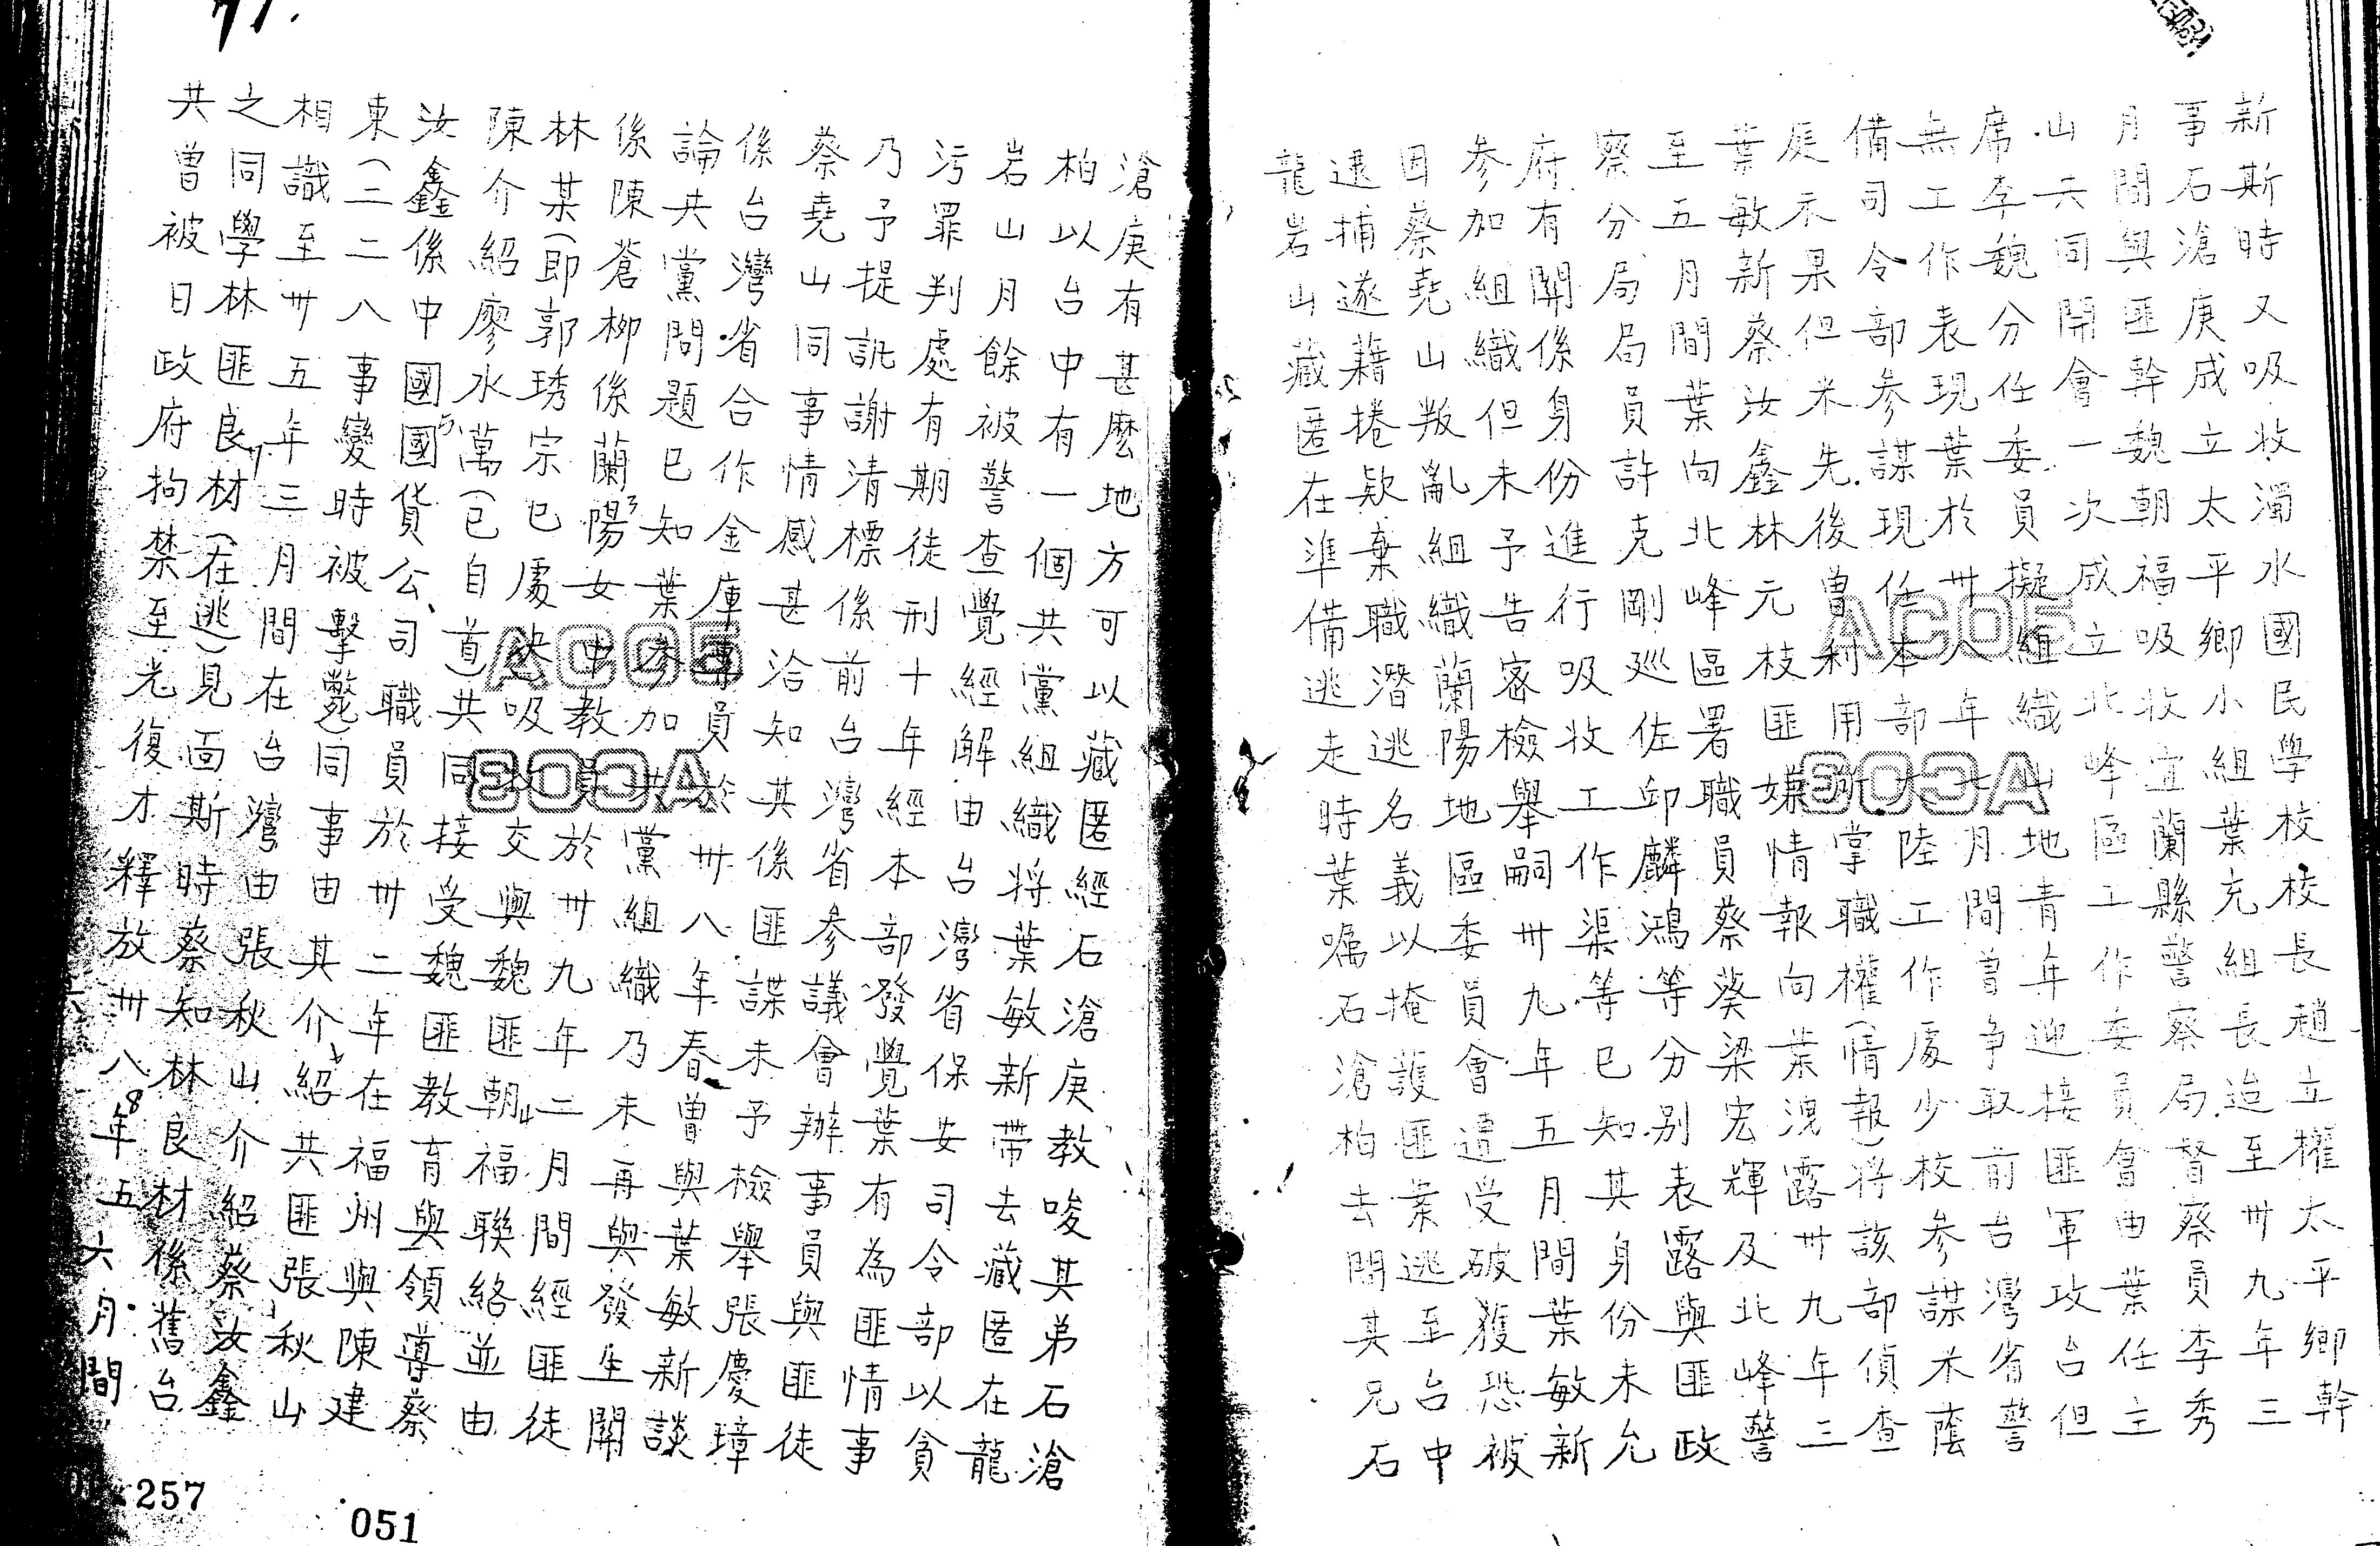 新斯時又吸收濁水國民學校校長趙立權太平鄉幹
事石滄庚成立太平鄉小組葉充組長迨至卅九年三
月間與匪幹魏朝福吸收宜蘭縣警察局督察員李秀
山云同開會一次成立北峰區工作委員會由葉任主
席李魏分任委員擬組織山地青年迎接匪軍攻台但
無工作表現葉於卅八年十一月間曾爭取前台灣省警
備司令部參謀現任本部大陸工作處少校參謀米蔭
庭不果但米先後曾利用所掌職權(情報)將該部偵查
葉敏新蔡汝鑫林元枝匪嫌情報向葉洩露卅九年三
至五月間葉向北峰區署職員蔡葵梁宏輝及北峰警
察分局局員許克剛巡佐邱麟鴻等分別表露與匪政
府有關係身份進行吸收工作渠等已知其身份未允
參加組織但未予告密檢舉嗣卅九年五月間葉敏新
因蔡堯山叛亂組織蘭陽地區委員會遭受破獲恐被
逮捕遂藉捲款棄職潛逃名義以掩護匪葉逃至台中
龍岩山藏匿在準備逃走時葉囑石滄柏去問其兄石
滄庚有甚麼地方可以藏匿經石滄庚教唆其弟石滄
柏以台中有一個共黨組織將葉敏新帶去藏匿在龍
岩山月餘被警查覺經解由台灣省保安司令部以貪
污罪判處有期徒刑十年經本部發覺葉有為匪情事
乃予提訊謝清標係前台灣省參議會辦事員與匪徒
蔡堯山同事情感甚洽知其係匪諜未予檢舉張慶璋
係台灣省合作金庫專員於卅八年春曾與葉敏新談
論共黨問題已知葉參加共黨組織乃未再與發生關
係陳蒼柳係蘭陽女中教員於卅九年二月間經匪徒
林某(即郭琇宗已處決)吸收交與魏匪朝福聯絡並由
陳介紹廖水萬(已自首)共同接受魏匪教育與領導蔡
汝鑫係中國國貨公司職員於卅二年在福州與陳建
東(二二八事變時被擊斃)同事由其介紹共匪張秋山
相識至卅五年三月間在台灣由張秋山介紹蔡汝鑫
之同學林匪良材(在逃)見面斯時蔡知林良材係舊台
共曾被日政府拘禁至光復才釋放卅八年五六月間
257
051